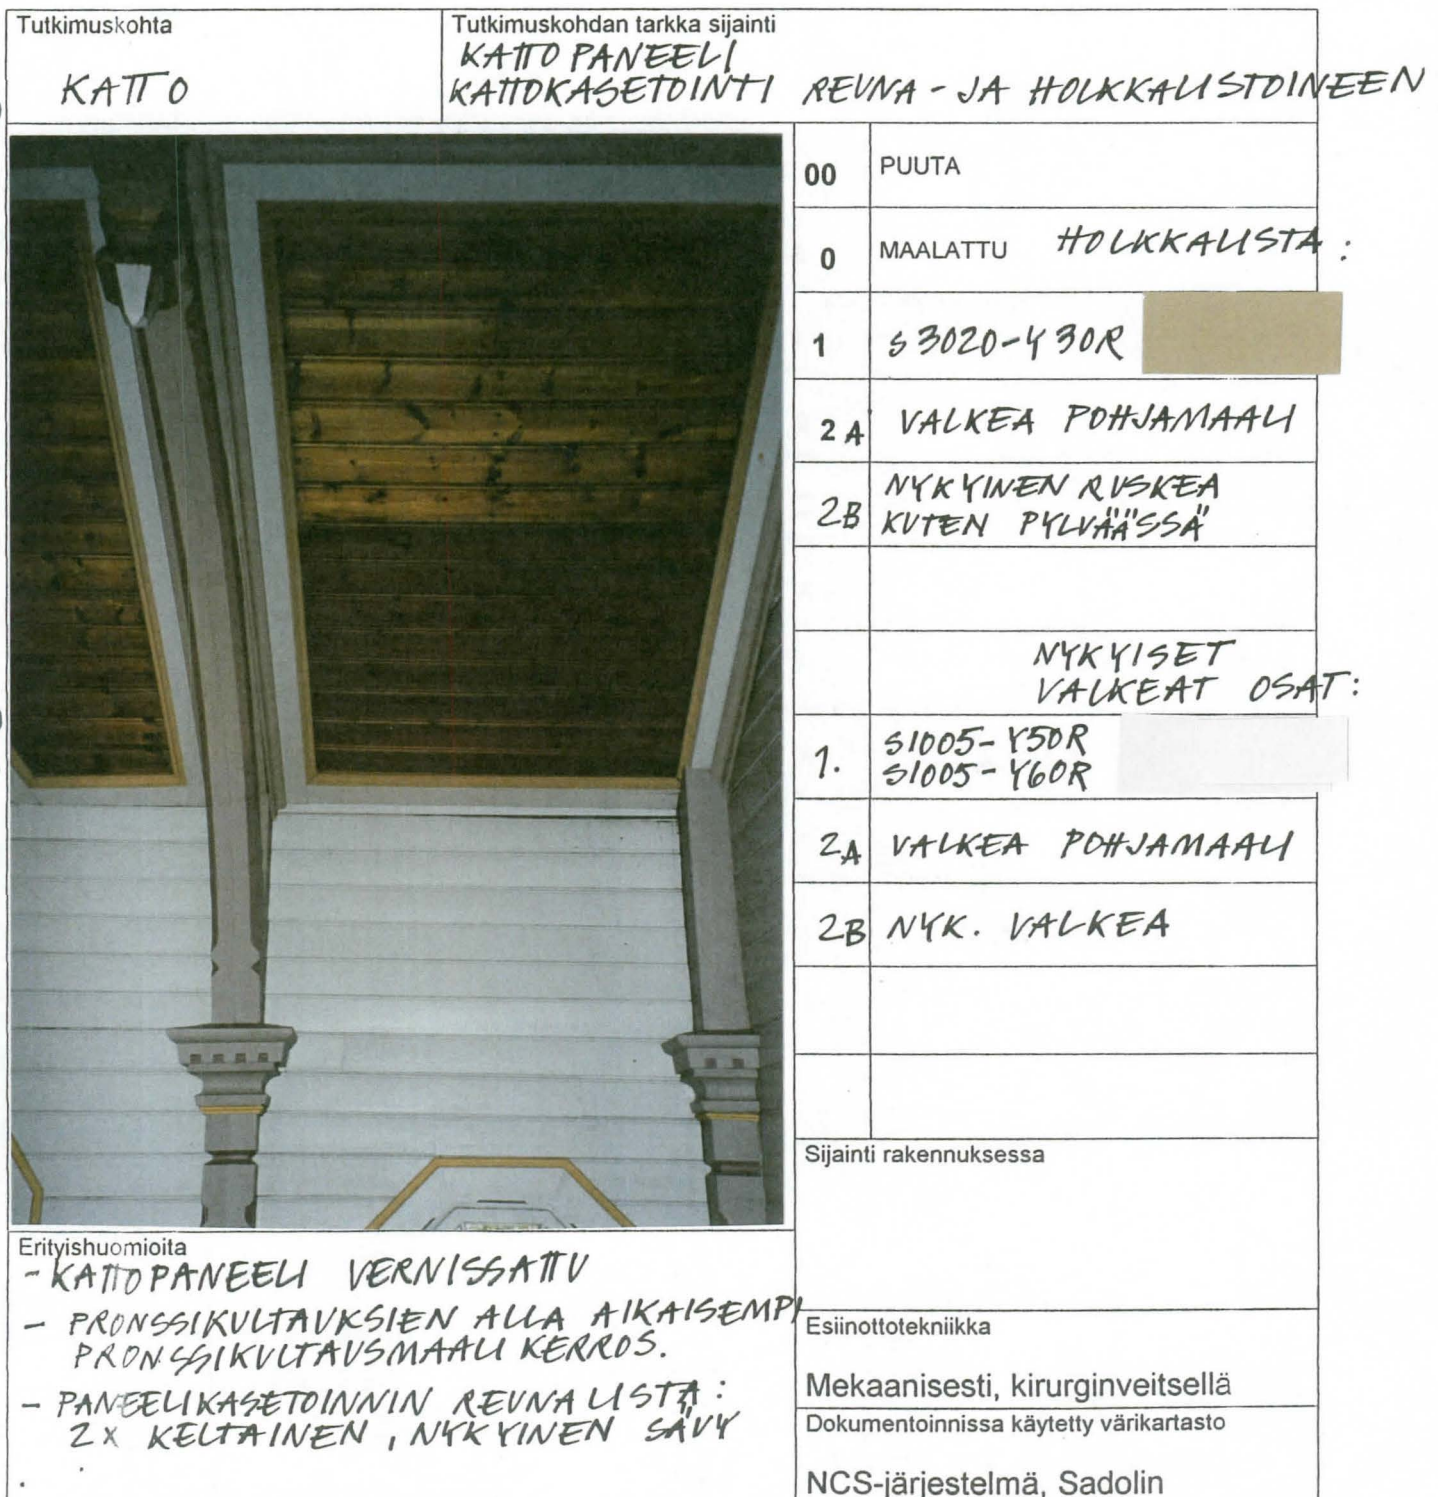 Tutkimuskohta
KATTO
Tutkimuskohdan tarkka sijainti
KATTO PANEELI
KATTOKASETOINTI REUNA - JA HOLKKALISTOINEEN
00 PUUTA
0 MAALATTU HOLKKALISTA :
1 S 3020-Y30R
2 A VALKEA POHJAMAALI
2B NYKYINEN RUSKEA
KUTEN PYLVÄÄSSÄ
NYKYISET
VALKEAT OSAT:
1. S1005-Y50R
S1005-Y60R
2A VALKEA POHJAMAALI
2B NYK. VALKEA
Sijainti rakennuksessa
Erityishuomioita
- KATTOPANEELI VERNISSATTU
- PRONSSIKULTAUKSIEN ALLA AIKAISEMPI
PRONSSIKULTAUSMAALI KERROS.
- PANEELIKASETOINNIN REUNALISTA :
2 X KELTAINEN , NYKYINEN SÄVY
Esiinottotekniikka
Mekaanisesti, kirurginveitsellä
Dokumentoinnissa käytetty värikartasto
NCS-järjestelmä, Sadolin